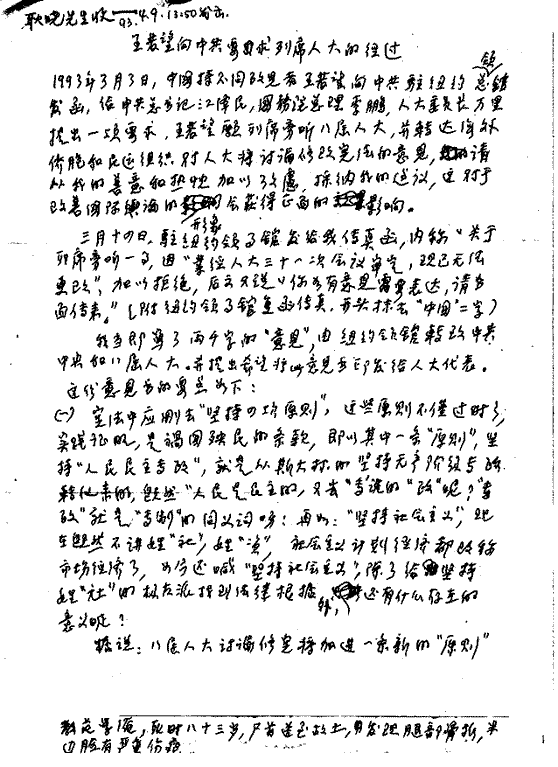 耿晓先生收
93.4.9. 13:50发出.
王若望向中共要求列席人大的经过
1993年3月3日,中国持不同政见者王若望向中共驻纽约总领馆
发函,给中共总书记江泽民,国务院总理李鹏,人大委员长万里
提出一项要求,王若望愿列席旁听八届人大,并转达海外
侨胞和民运组织对人大将讨论修改宪法的意见,请
以我的善意和热忱加以考虑,採纳我的建议,这对于
改善国际舆论的形象会获得正面的影响。
三月十四日,驻纽约领事馆发给我传真函,内称“关于
列席旁听一事,因“业经人大三十一次会议审定,现已无法
更改”,加以拒绝,后文又说“你若有意见需要表达,请书
面传来。”(附纽约领事馆复函传真,开头抹去“中国”二字)
我当即写了两千字的“意见”,由纽约领馆转致中共
中央和八届人大。并提出希望将此意见书印发给人大代表。
这份意见书的要点如下:
(一)宪法中应删去“坚持四项原则”,这些原则不仅过时了,
实践证明,是祸国殃民的条款,即以其中一条“原则”,坚
持“人民民主专政”,就是从斯大林的“坚持无产阶级专政
转化来的,既然“人民是民主的,又去“专谁的“政”呢?“专
政”就是“专制”的同义词吗!再如:“坚持社会主义”,现
在既然不讲姓“社”,姓“资”,社会主义计划经济都改称
市场经济了,如今还喊“坚持社会主义”,除了给坚持
姓“社”的极左派找到法律根据外,还有什么存在的
意义呢?
据说:八届人大讨论修宪将加进一条新的“原则”
现时八十三岁,尸首运至故土,发现腿部骨折,半
边脸有严重伤痕